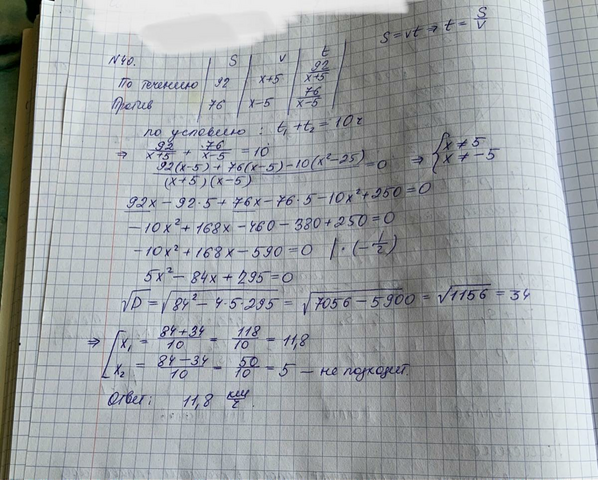 S = vt ⇒ t = S/v
№40. | S | v | t
По течению | 92 | x+5 | 92/(x+5)
Против | 76 | x-5 | 76/(x-5)
по условию : t₁+t₂ = 10ч
⇒ 92/(x+5) + 76/(x-5) = 10
(92(x-5) + 76(x-5) - 10(x²-25))/((x+5)(x-5)) = 0 ⇒ { x ≠ 5 x ≠ -5
92x - 92·5 + 76x - 76·5 - 10x² + 250 = 0
-10x² + 168x - 460 - 380 + 250 = 0
-10x² + 168x - 590 = 0 | · (-1/2)
5x² - 84x + 295 = 0
√D = √(84² - 4·5·295) = √(7056 - 5900) = √1156 = 34
⇒ [ x₁ = (84+34)/10 = 118/10 = 11,8
x₂ = (84-34)/10 = 50/10 = 5 — не подходит.
Ответ: 11,8 км/ч.